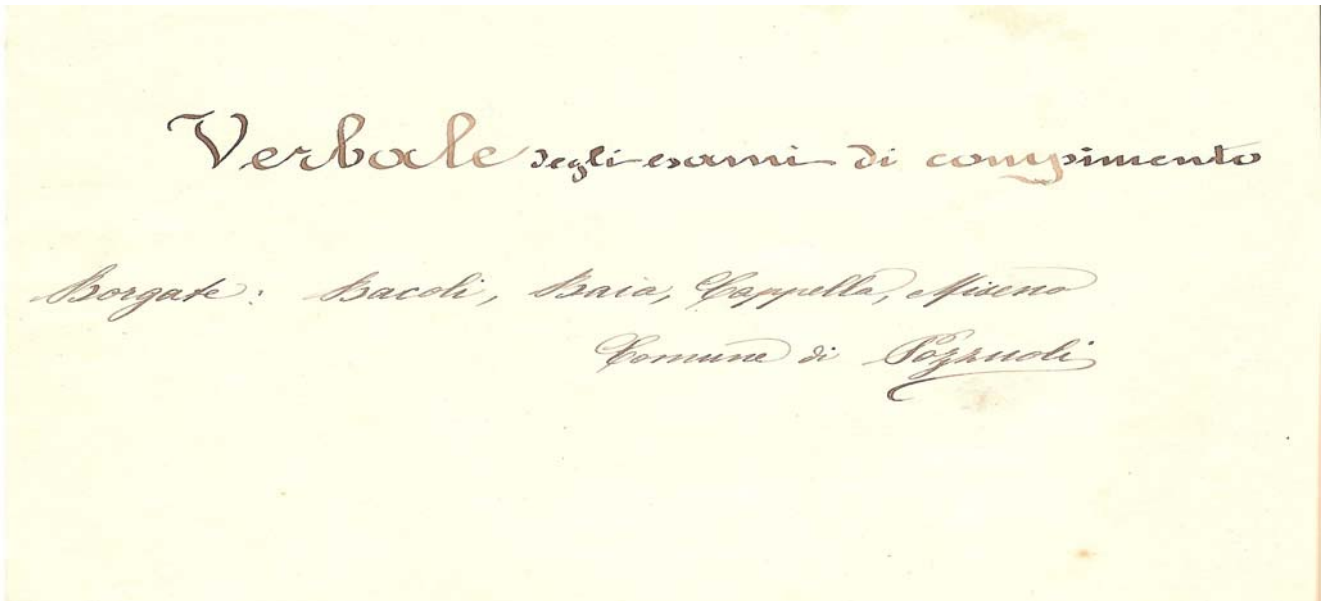 Verbale degli esami di compimento
Borgate: Bacoli, Baia, Cappella, Miseno
Comune di Pozzuoli